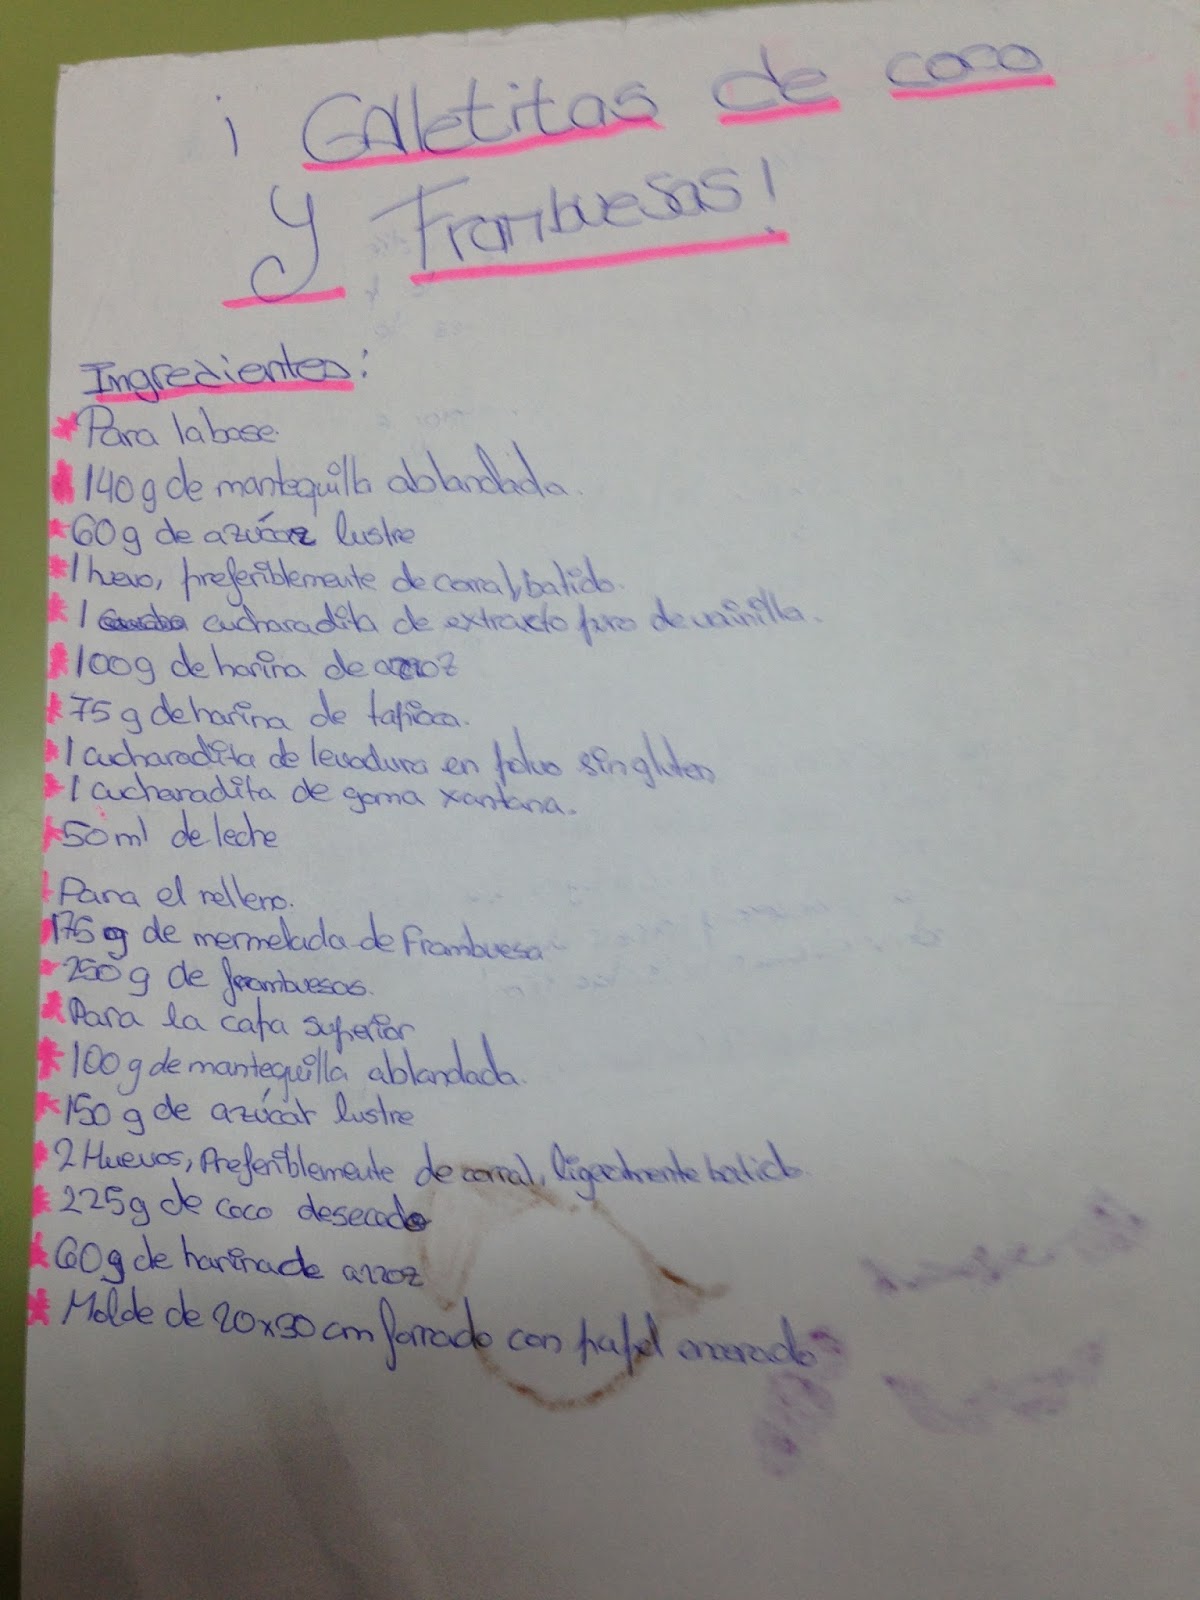 ¡Galletitas de coco
y Frambuesas!
Ingredientes:
*Para la base.
*140g de mantequilla ablandada.
*60g de azúcar lustre
*1 huevo, preferiblemente de corral, batido.
*1 cucharadita de extracto puro de vainilla.
*100g de harina de arroz
*75g de harina de tapioca.
*1 cucharadita de levadura en polvo sin gluten
*1 cucharadita de goma xantana.
*50ml de leche
*Para el relleno.
*175g de mermelada de Frambuesa
*250g de frambuesas.
*Para la capa superior
*100g de mantequilla ablandada.
*150g de azúcar lustre
*2 Huevos, Preferiblemente de corral, ligeramente batido.
*225g de coco desecado
*60g de harina de arroz
*Molde de 20x30cm forrado con papel encerado